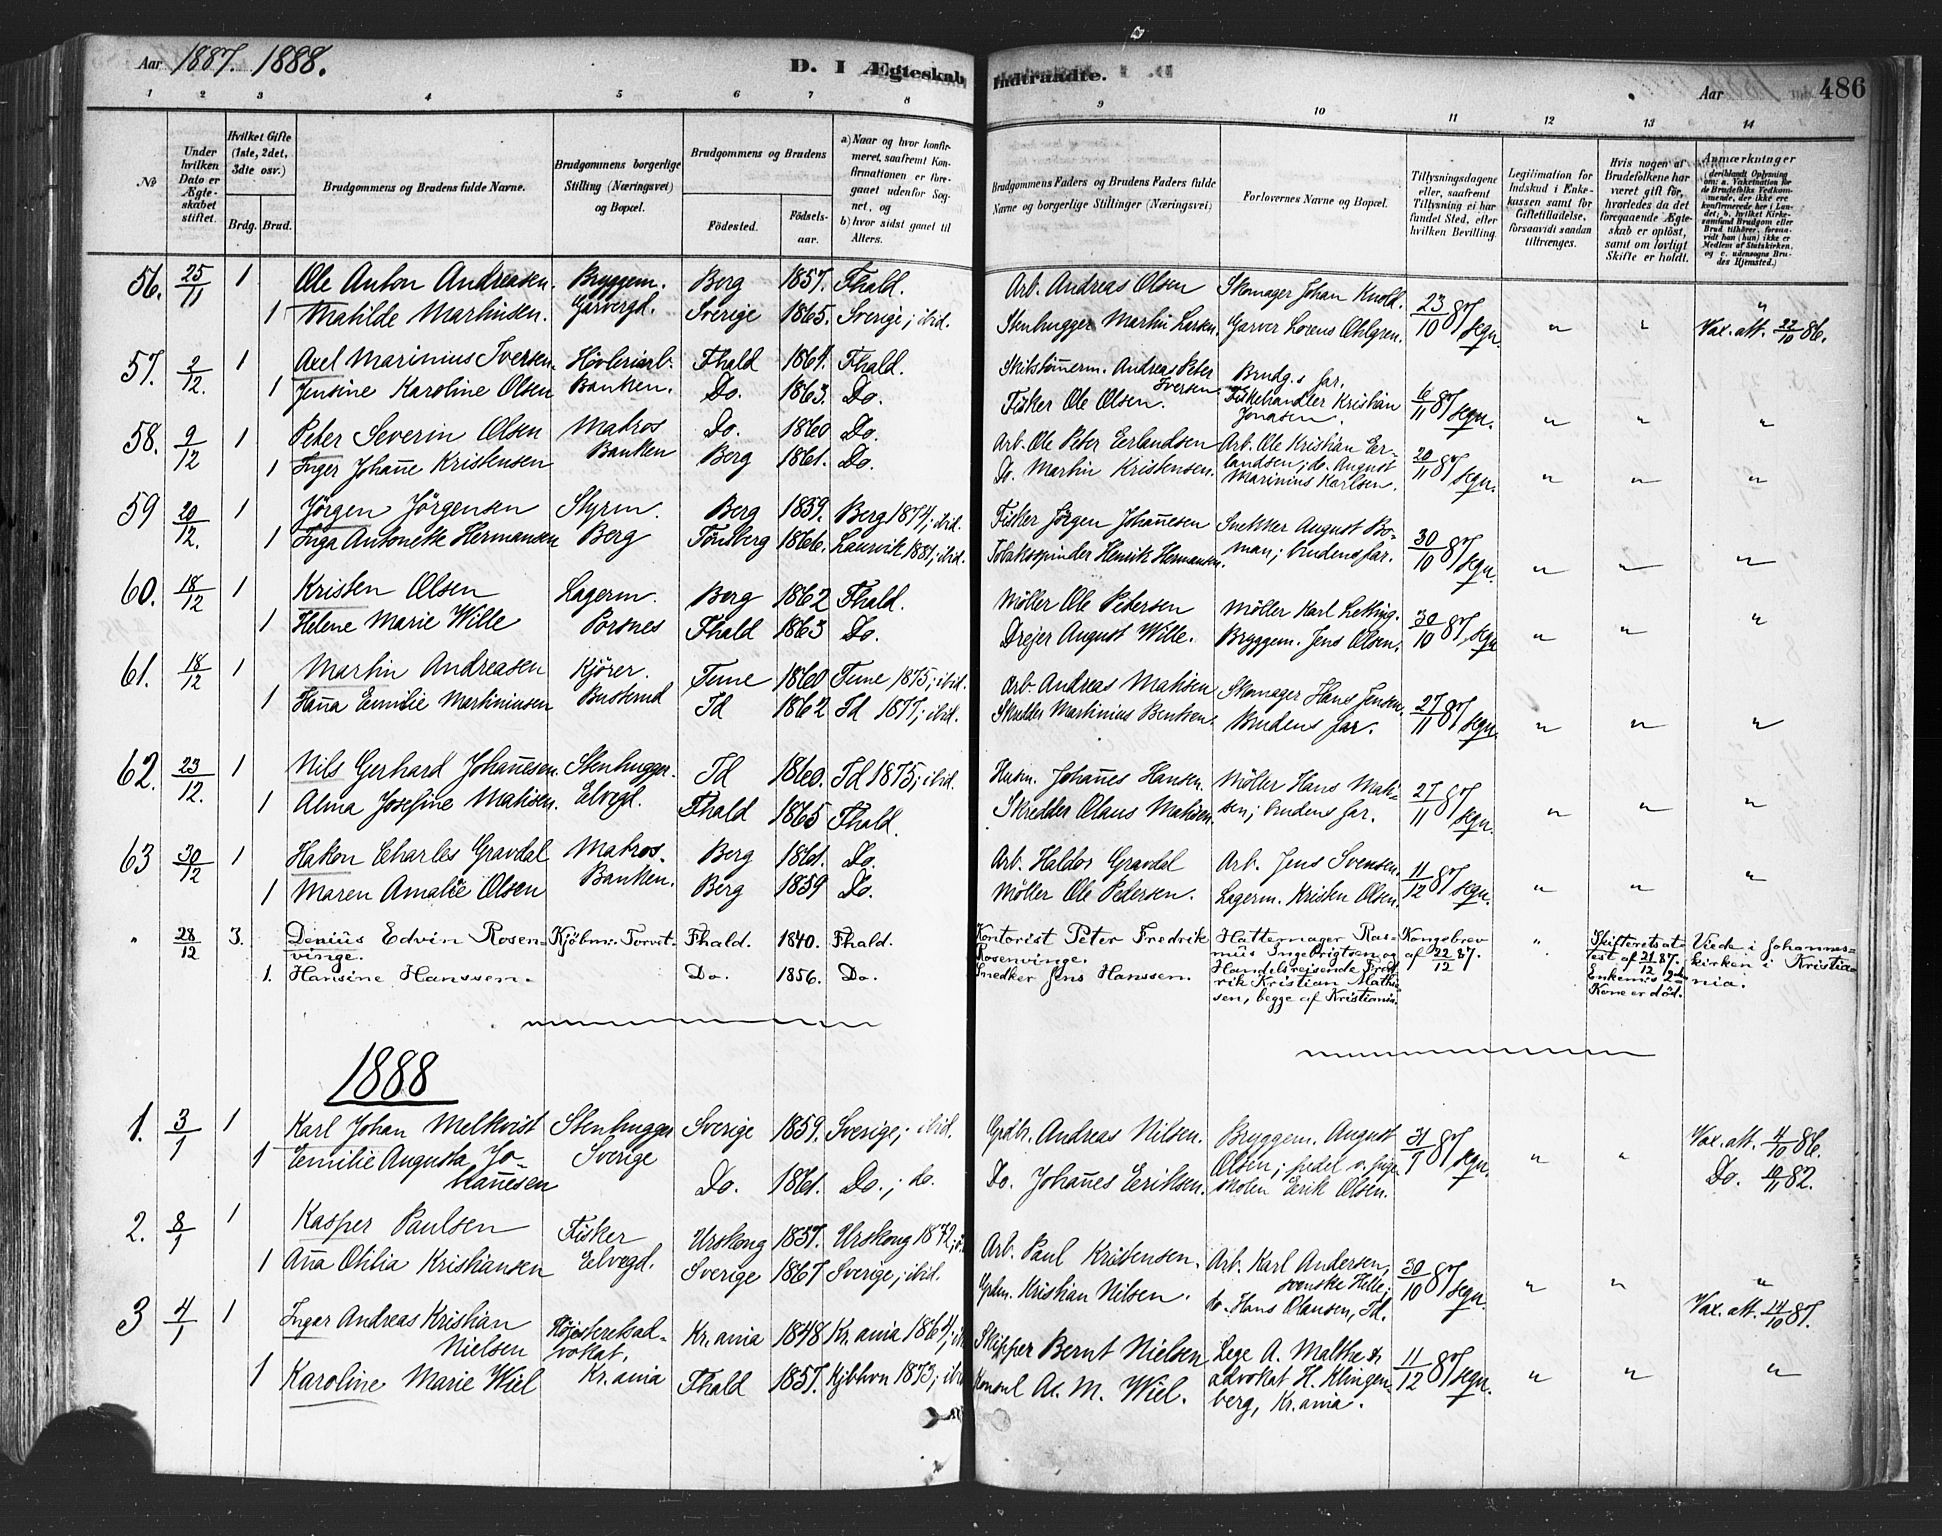 Aar 1887. 1888.
D. I Ægteskab Indtraadte.
Aar 486
1 2 3 4 5 6 7 8 9 10 11 12 13 14
No
Under hvilken Dato er Ægteskabet stiftet.
Hvilket Gifte (1ste, 2det, 3die osv.)
Brdg. Brud.
Brudgommens og Brudens fulde Navne.
Brudgommens borgerlige Stilling (Næringsvei) og Bopæl.
Brudgommens og Brudens
Fødested. Fødsels-aar.
a) Naar og hvor konfirmeret, saafremt Konfirmationen er foregaaet udenfor Sognet, og b) hvor sidst gaaet til Alters.
Brudgommens Faders og Brudens Faders fulde Navne og borgerlige Stillinger (Næringsvei)
Forlovernes Navne og Bopæl.
Tillysningsdagene eller, saafremt Tillysning ei har fundet Sted, efter hvilken Bevilling.
Legitimation for Indskud i Enkekassen samt for Giftetilladelse, forsaavidt saadan tiltrænges.
Hvis nogen af Brudefolkene har været gift før, hvorledes da det foregaaende Ægteskab er opløst, samt om lovligt Skifte er holdt.
Anmærkninger
56. 25/11 1 Ole Anton Andreasen. Bryggem. Berg 1857. Fhald. Arb. Andreas Olsen Skomager Johan Knold. 23/10 87 segn. " " "
1 Matilde Martinsen. Garvergd. Sverige 1865. Sverige; ibid. Stenhugger Martin Larsen. Garver Lorens Ohlgren. Vax. att. 22/10 86.
57. 2/12. 1 Axel Marinius Iversen. Høvleriarb. Fhald 1864. Fhald. Skibstømerm. Andreas Peter Iversen Brudg.s far. 6/11 87 segn. " " "
1 Jensine Karoline Olsen Banken. Do. 1863. Do. Fisker Ole Olsen. Fiskehandler Kristian Jonasen.
58. 9/12 1 Peter Severin Olsen Matros Do. 1860 Do. Arb. Ole Peter Erlandsen Arb. Ole Kristian Er- 20/11 87 segn. " " "
1 Inger Johanne Kristensen Banken Berg 1861. Do. Do. Martin Kristensen. landsen; do. August Marinius Karlsen.
59 20/12. 1 Jørgen Jørgensen Styrm. Berg 1859. Berg 1874; ibid. Fisker Jørgen Johannesen Snekker August Bo- 30/10 87 segn. " " "
1 Inga Antonette Hermansen Berg Tønsberg 1866. Laurvik 1881; ibid. Tobaksspinder Henrik Hermansen. man; brudens far.
60. 18/12 1 Kristen Olsen Lagerm. Berg 1862 Fhald. Møller Ole Petersen Møller Karl Letting. 30/10 87 segn " " "
1 Helene Marie Wille Pørsnes Fhald 1863 Do. Drejer August Wille. Bryggem. Jens Olsen.
61. 18/12 1 Martin Andreasen Kjører. Tune 1860 Tune 1875; ibid. Arb. Andreas Matisen Skomager Hans Jensen. 27/11 87 segn. " " "
1 Hanna Emilie Martiniusen Busterud Id 1862 Id 1877; ibid. Skredder Martinius Bentsen Brudens far.
62. 23/12. 1 Nils Gerhard Johannesen. Stenhugger. Id 1860. Id 1875; ibid. Husm. Johannes Hansen. Møller Hans Mati- 27/11 87 segn. " " "
1 Alma Josefine Matisen. Elvegd. Fhald 1865 Fhald. Skredder Olaus Matisen. sen; brudens far.
63 30/12 1 Hakon Charles Gravdal Matros. Berg 1861. Do. Arb. Haldor Gravdal Arb. Jens Svensen. 11/12 87 segn. " " "
1 Maren Amalie Olsen Banken. Berg 1859 Do. Møller Ole Petersen. Lagerm. Kristen Olsen.
" 28/12 3. Denius Edvin Rosenvinge. Kjøbm. Torvet. Fhald. 1840. Fhald. Kontorist Peter Fredrik Rosenvinge. Hattemager Rasmus Ingebrigtsen og Handelsreisende Fredrik Kristian Mathisen, begge af Kristiania. Kongebrev af 22/12 87. " Skifteretsattest af 21/12 87. Enkem.s 2den Kone er død. Viede i Johanneskirken i Kristiania.
1. Hansine Hanssen. Do. 1856. Do. Snedker Jens Hanssen.
1888
1. 3/1 1 Karl Johan Melkvist Stenhugger Sverige 1859. Sverige; ibid. Gråb. Andreas Nilsen. Bryggem. August 31/1 87 segn. " " Vax. att. 4/10 86.
1 Emilie Augusta Johannesen Sverige Do. 1861. Do.; do. Do. Johannes Eriksen. Olsen; pedel v. pigeskolen Erik Olsen. Do. 10/11 82.
2. 8/1 1 Kasper Paulsen Fisker Urskoug 1857. Urskoug 1872; Arb. Paul Kristensen. Arb. Karl Andersen, 30/10 87 segn. " " "
1 Anna Otilia Kristiansen Elvegd. Sverige 1867 Sverige; ibid. Grdm. Kristian Nilsen. svenske Tille; do. Hans Olausen, Id. Vax. att. 14/10 87.
3 4/1 1 Ingar Andreas Kristian Nielsen Højesteretsadvokat, Kr.ania Kr.ania 1848 Kr.ania 1864; Skipper Bernt Nielsen Læge A. Malthe & 11/12 87 segn. " " "
1 Karoline Marie Wiel Fhald 1857. Kjbhvn 1873; ibid Konsul Ad. M. Wiel. advokat H. Klingenberg, Kr.ania.